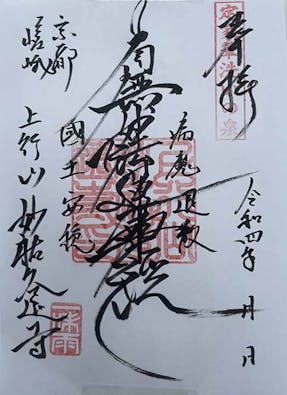 奉拝
令和四年 月 日
病魔退散
南無妙法蓮華経
國土安穏
京都
嵯峨
上行山 妙祐久遠寺